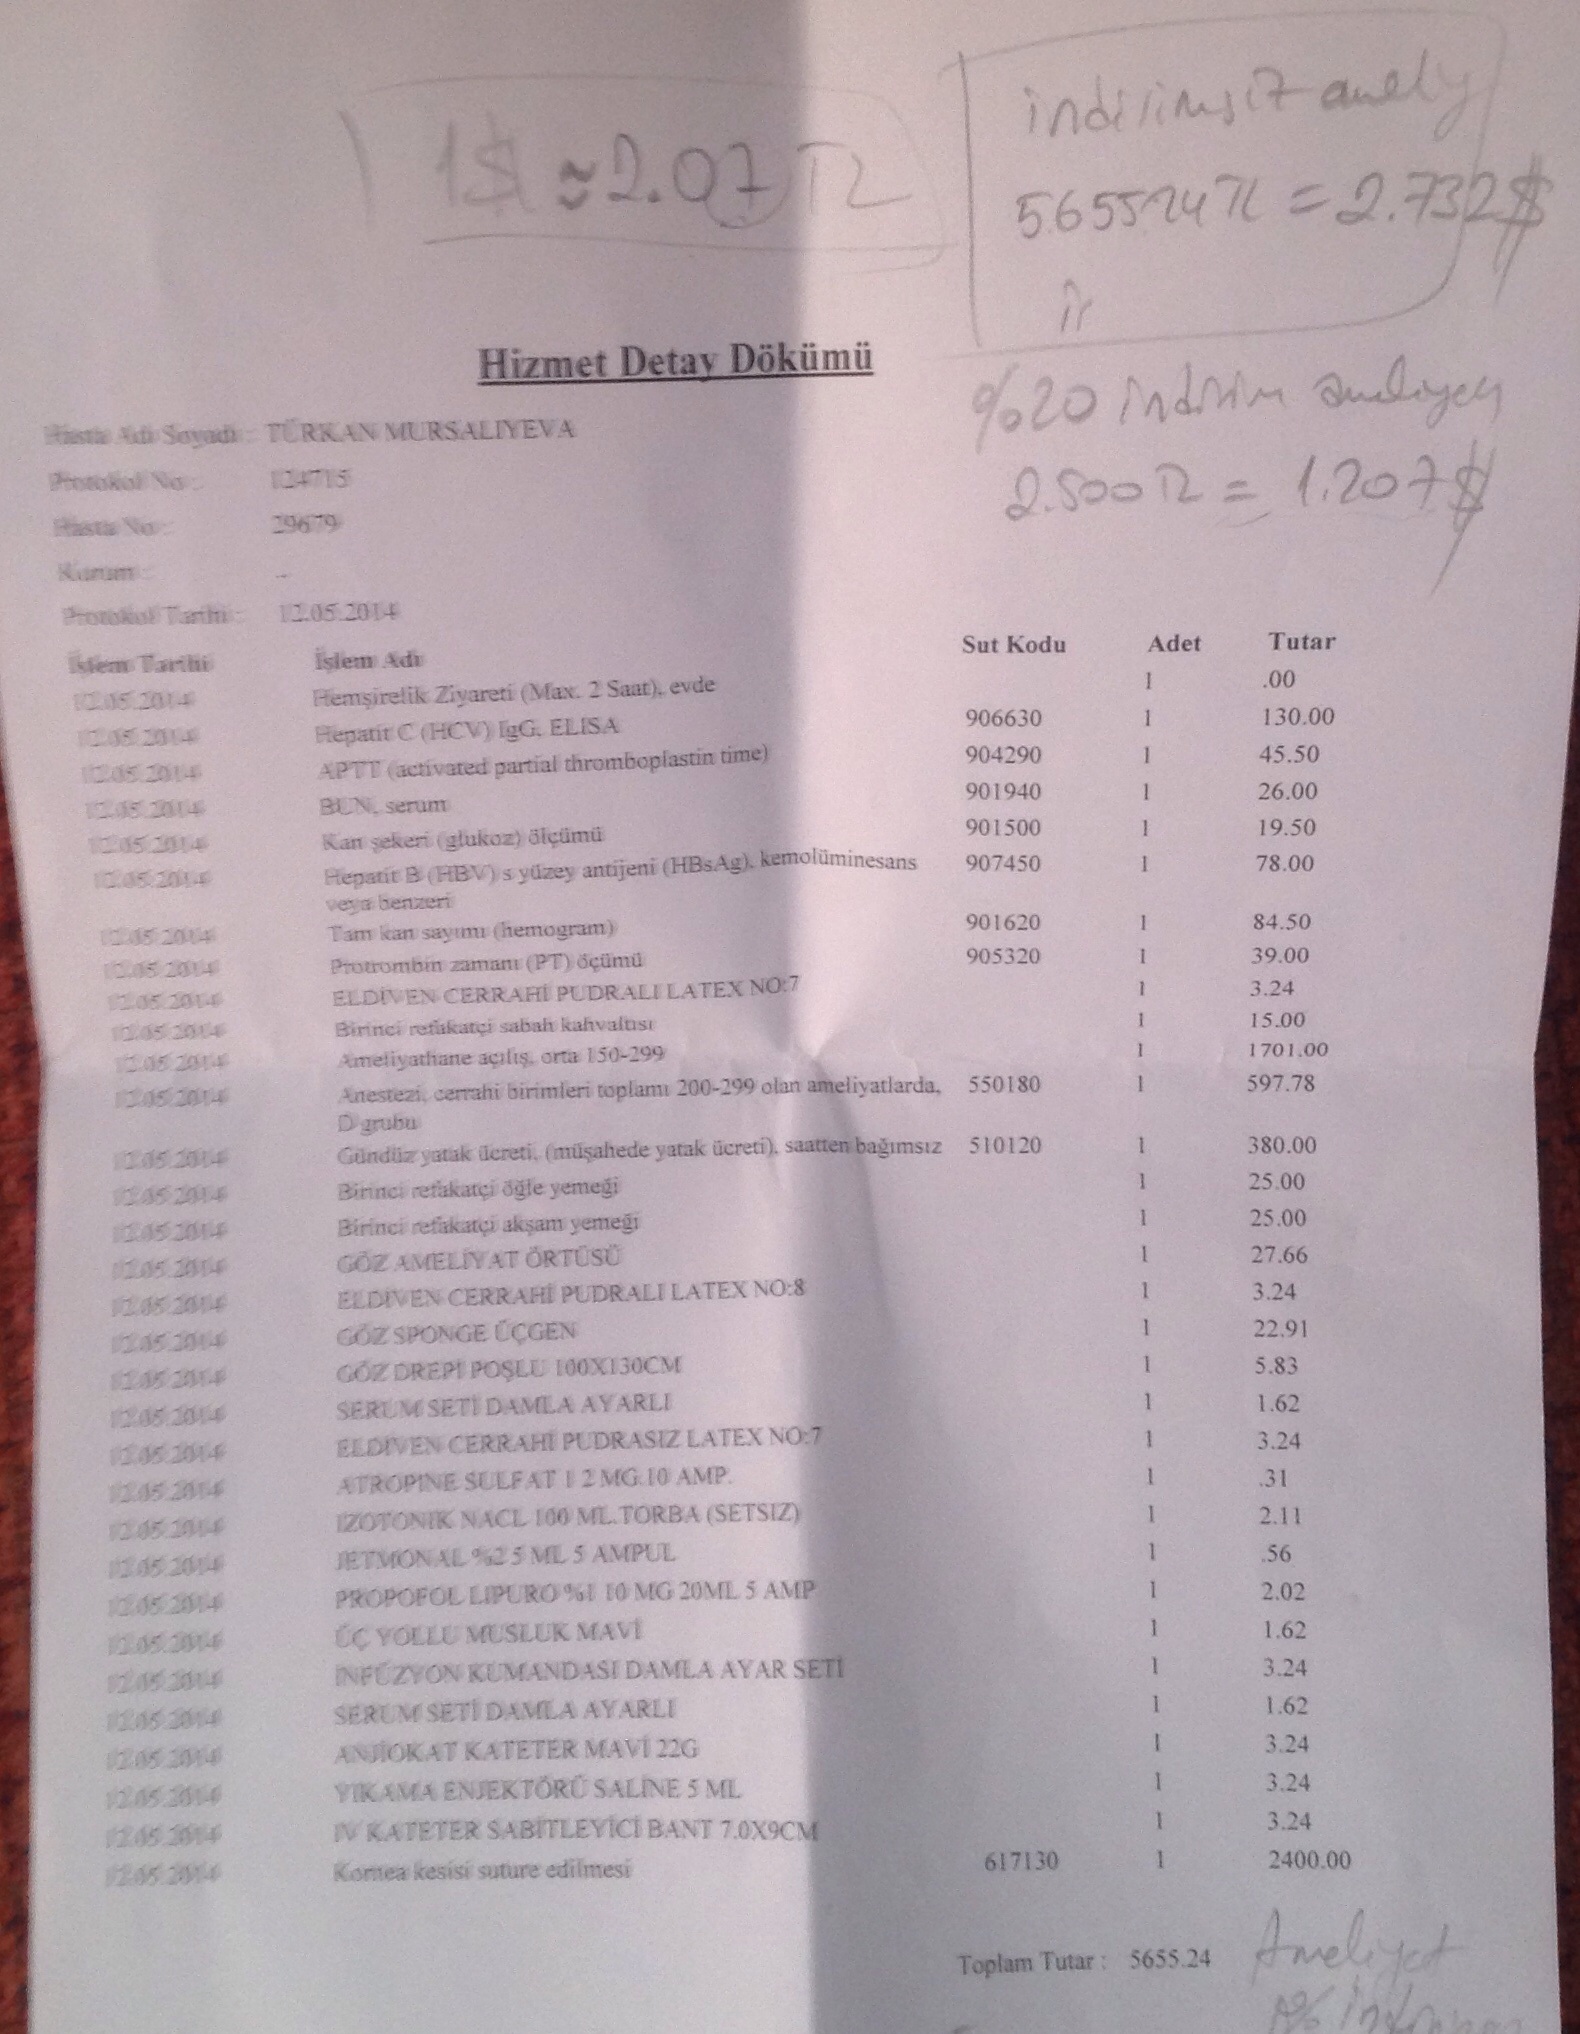 1$ ≈ 2.07 TL
indirimsiz
5655.24 TL = 2.732$
%20 indirim
2.500 TL = 1.207$
Hizmet Detay Dökümü
Hasta Adı Soyadı : TÜRKAN MURSALIYEVA
Protokol No : 124715
Hasta No : 29679
Kurum : -
Protokol Tarihi : 12.05.2014
İstem Tarihi İşlem Adı Sut Kodu Adet Tutar
12.05.2014 Hemşirelik Ziyareti (Max. 2 Saat), evde 1 .00
12.05.2014 Hepatit C (HCV) IgG, ELISA 906630 1 130.00
12.05.2014 APTT (activated partial thromboplastin time) 904290 1 45.50
12.05.2014 BUN, serum 901940 1 26.00
12.05.2014 Kan şekeri (glukoz) ölçümü 901500 1 19.50
12.05.2014 Hepatit B (HBV) s yüzey antijeni (HBsAg), kemolüminesans 907450 1 78.00
veya benzeri
12.05.2014 Tam kan sayımı (hemogram) 901620 1 84.50
12.05.2014 Protrombin zamanı (PT) öçümü 905320 1 39.00
12.05.2014 ELDİVEN CERRAHİ PUDRALI LATEX NO:7 1 3.24
12.05.2014 Birinci refakatçi sabah kahvaltısı 1 15.00
12.05.2014 Ameliyathane açılış, orta 150-299 1 1701.00
12.05.2014 Anestezi, cerrahi birimleri toplamı 200-299 olan ameliyatlarda, 550180 1 597.78
D grubu
12.05.2014 Gündüz yatak ücreti, (müşahede yatak ücreti), saatten bağımsız 510120 1 380.00
12.05.2014 Birinci refakatçi öğle yemeği 1 25.00
12.05.2014 Birinci refakatçi akşam yemeği 1 25.00
12.05.2014 GÖZ AMELİYAT ÖRTÜSÜ 1 27.66
12.05.2014 ELDİVEN CERRAHİ PUDRALI LATEX NO:8 1 3.24
12.05.2014 GÖZ SPONGE ÜÇGEN 1 22.91
12.05.2014 GÖZ DREPİ POŞLU 100X130CM 1 5.83
12.05.2014 SERUM SETİ DAMLA AYARLI 1 1.62
12.05.2014 ELDİVEN CERRAHİ PUDRASIZ LATEX NO:7 1 3.24
12.05.2014 ATROPINE SULFAT 1 2 MG.10 AMP. 1 .31
12.05.2014 IZOTONIK NACL 100 ML.TORBA (SETSIZ) 1 2.11
12.05.2014 JETMONAL %2 5 ML 5 AMPUL 1 .56
12.05.2014 PROPOFOL LIPURO %1 10 MG 20ML 5 AMP 1 2.02
12.05.2014 ÜÇ YOLLU MUSLUK MAVİ 1 1.62
12.05.2014 INFÜZYON KUMANDASI DAMLA AYAR SETİ 1 3.24
12.05.2014 SERUM SETİ DAMLA AYARLI 1 1.62
12.05.2014 ANJİOKAT KATETER MAVİ 22G 1 3.24
12.05.2014 YIKAMA ENJEKTÖRÜ SALİNE 5 ML 1 3.24
12.05.2014 IV KATETER SABİTLEYİCİ BANT 7.0X9CM 1 3.24
12.05.2014 Kornea kesisi suture edilmesi 617130 1 2400.00
Toplam Tutar : 5655.24 Ameliyat